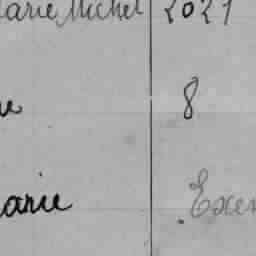 arie Michel 2021
e 8
arie Exem